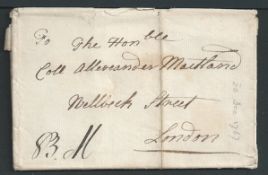 To The Honble
Coll Allexsander Maitland
Wellbeck Street
London